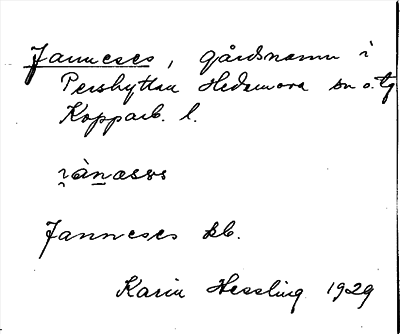 Janneses, gårdsnamn i
Pershyttan Hedemora sn o. tg
Kopparb. l.
Janneses kb.
Karin Hessling 1929